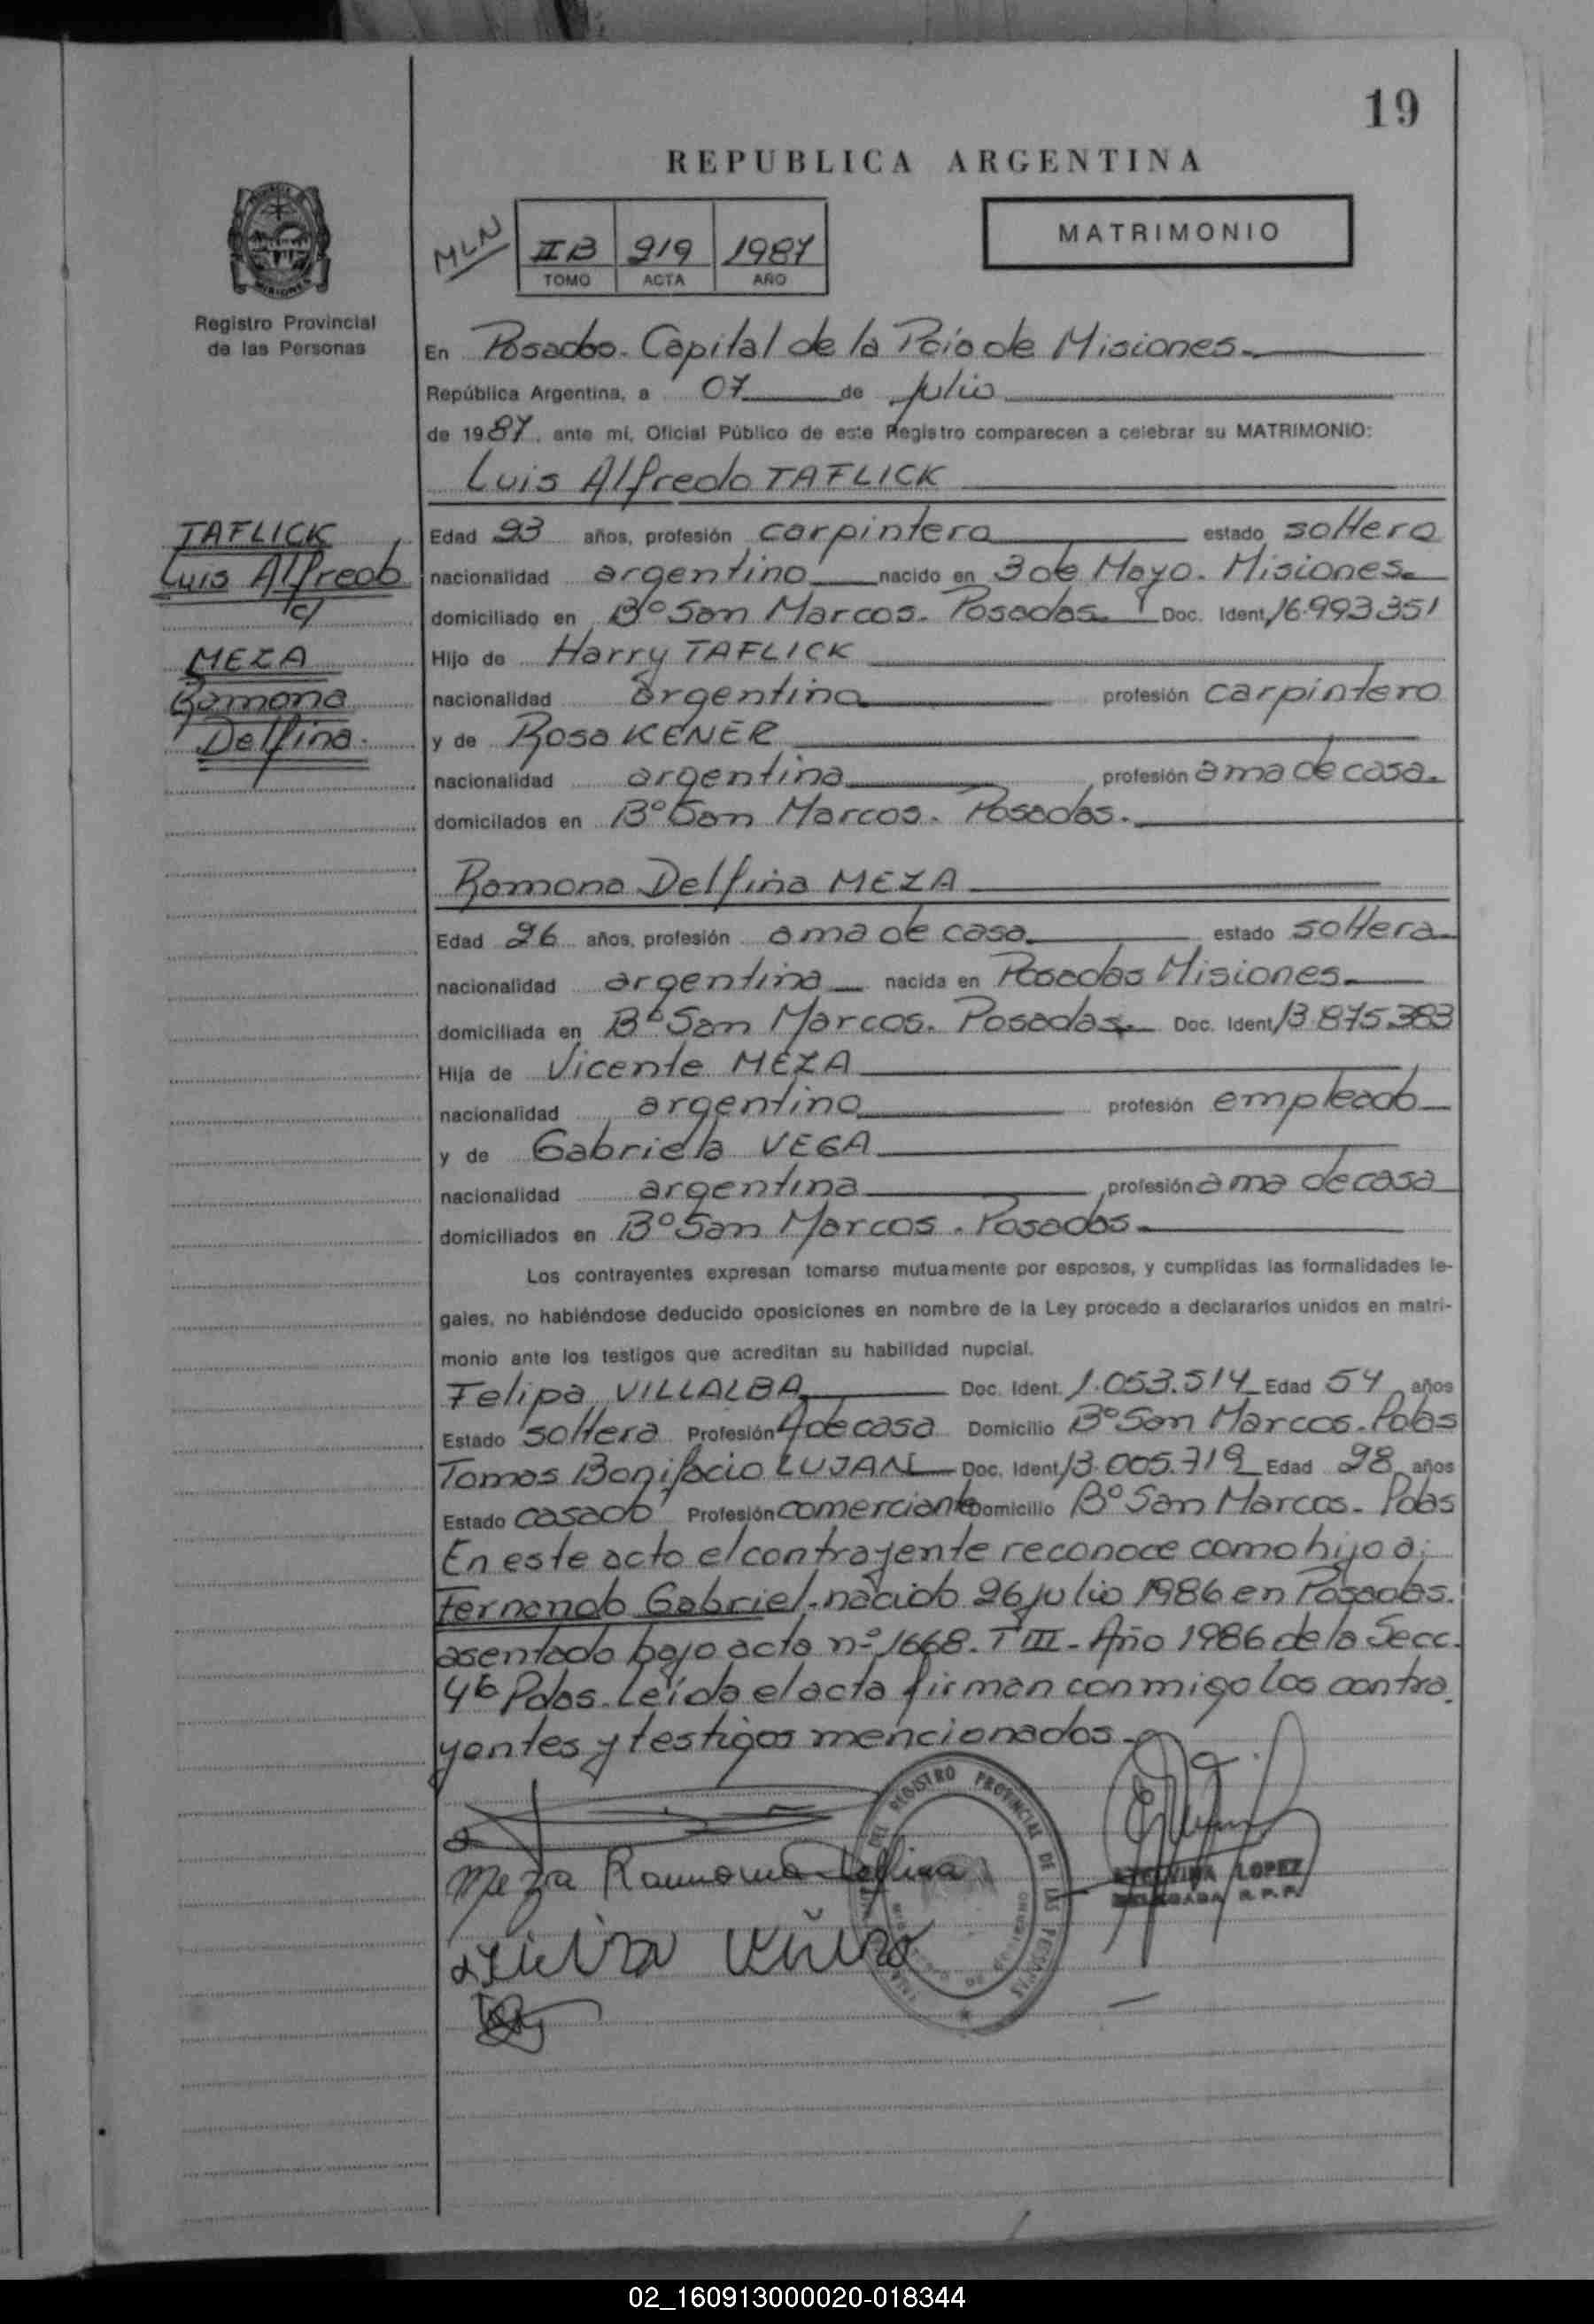 19
REPUBLICA ARGENTINA
MLN
II B 219 1987
TOMO ACTA AÑO
MATRIMONIO
Registro Provincial
de las Personas
En Posadas. Capital de la Pcia de Misiones.
República Argentina, a 07 de julio
de 1987, ante mi, Oficial Público de este Registro comparecen a celebrar su MATRIMONIO:
Luis Alfredo TAFLICK
TAFLICK
Luis Alfredo
c/
MEZA
Ramona
Delfina.
Edad 23 años, profesión carpintero estado soltero
nacionalidad argentino nacido en 3 de Mayo. Misiones.
domiciliado en Bº San Marcos. Posadas. Doc. Ident. 16.993.351
Hijo de Harry TAFLICK
nacionalidad argentino profesión carpintero
y de Rosa KENER
nacionalidad argentina profesión ama de casa.
domicilados en Bº San Marcos. Posadas.
Ramona Delfina MEZA
Edad 26 años, profesión ama de casa. estado soltera
nacionalidad argentina nacida en Posadas Misiones.
domiciliada en Bº San Marcos. Posadas. Doc. Ident. 13.875.383
Hija de Vicente MEZA
nacionalidad argentino profesión empleado
y de Gabriela VEGA
nacionalidad argentina profesión ama de casa
domiciliados en Bº San Marcos. Posadas.
Los contrayentes expresan tomarse mutuamente por esposos, y cumplidas las formalidades le-
gales, no habiéndose deducido oposiciones en nombre de la Ley procedo a declararlos unidos en matri-
monio ante los testigos que acreditan su habilidad nupcial.
Felipa VILLALBA Doc. Ident. 1.053.514 Edad 54 años
Estado soltera Profesión A de casa Domicilio Bº San Marcos. Pdas
Tomas Bonifacio LUJAN Doc. Ident. 13.005.712 Edad 28 años
Estado casado Profesión comerciante Domicilio Bº San Marcos. Pdas
En este acto el contrayente reconoce como hijo a:
Fernando Gabriel. nacido 26 julio 1986 en Posadas.
asentado bajo acta nº 1668. T III. Año 1986 de la Secc.
4ta Pdas. Leída el acta firman conmigo los contra
yentes y testigos mencionados.
Meza Ramona Delfina
DEL REGISTRO PROVINCIAL DE LAS PERSONAS
LOPEZ
DELEGADA R.P.P.
02_160913000020-018344